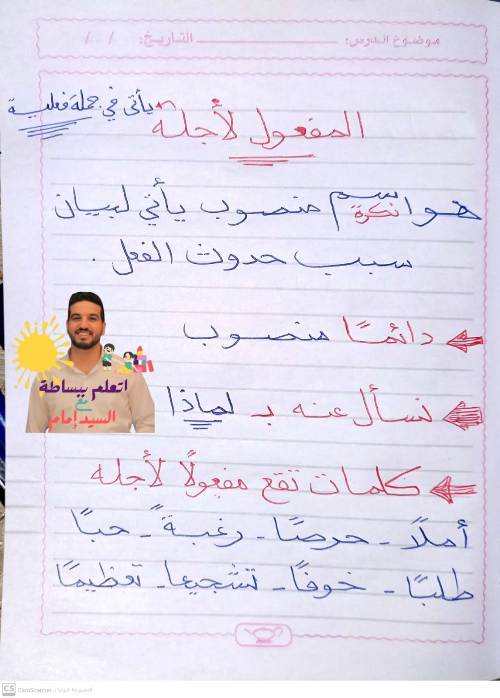 موضوع الدرس: التاريخ: / /
المفعول لأجله يأتى في جملة فعلية
هو اسم نكرة منصوب يأتي لبيان
سبب حدوث الفعل .
دائمًا منصوب
نسأل عنه بـ لماذا
كلمات تقع مفعولًا لأجله
أملًا - حرصًا - رغبةً - حبًا
طلبًا - خوفًا - تشجيعا - تعظيمًا
اتعلم ببساطة
مع
السيد إمام
CS CamScanner